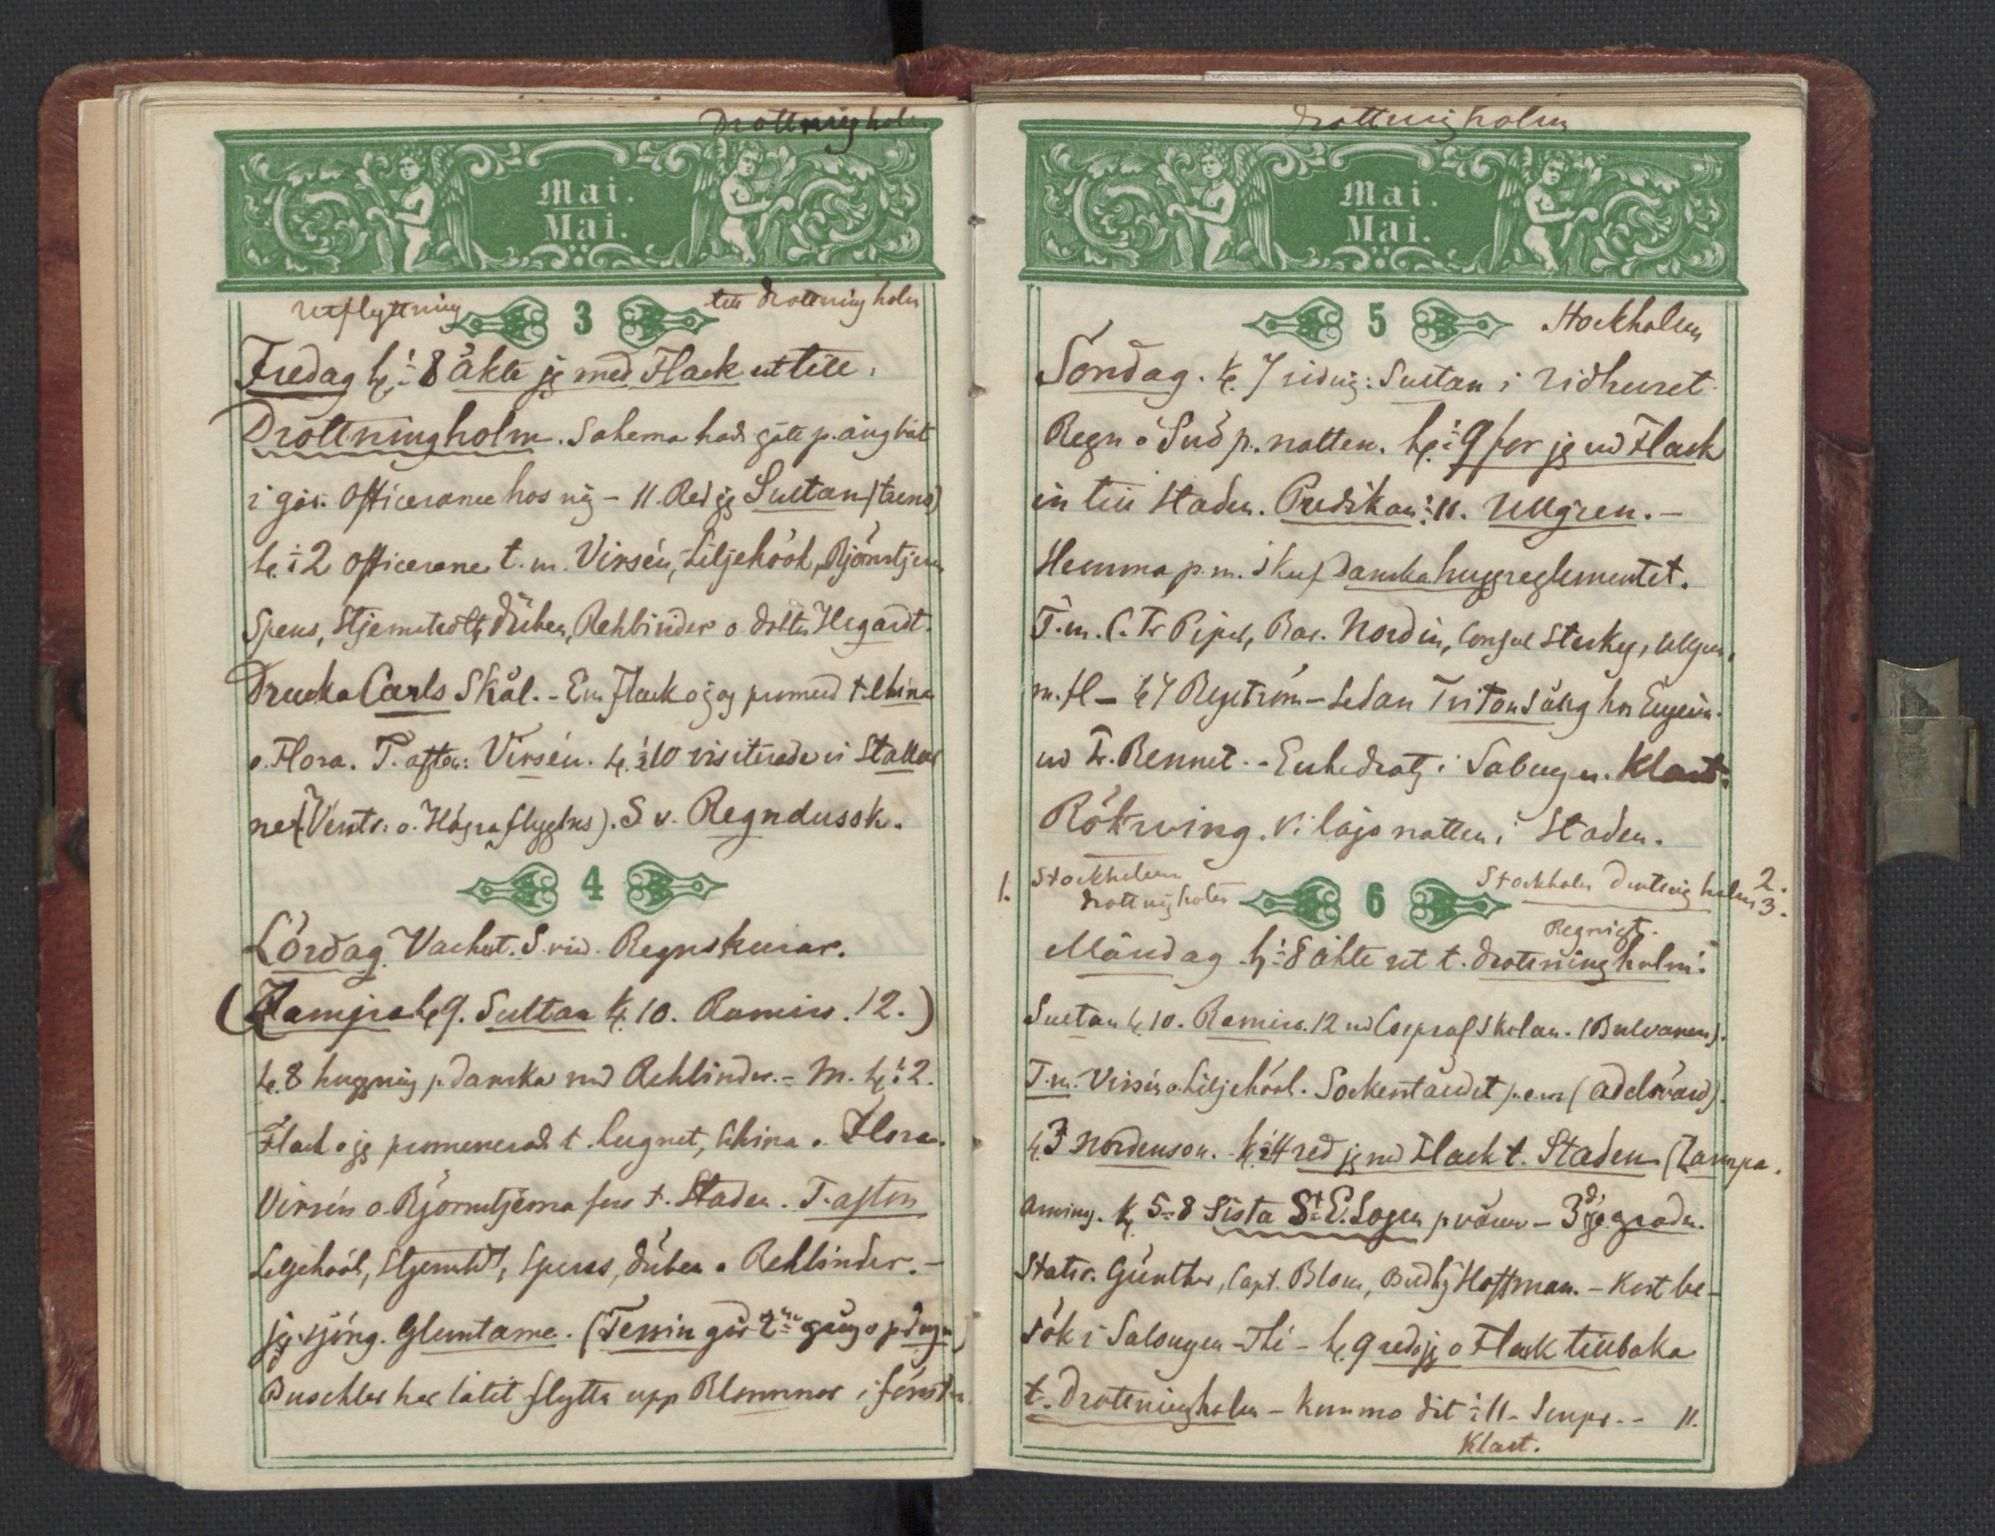 Drottningholm
Mai.
Mai.
Utflyttning 3 till Drottningholm
Fredag kl. ½ 8 åkte jg med Flack ut till
Drottningholm. Sakerna hade gått p. ångbåt
i går. Officerarne hos mig – 11. Red jg Sultan (trens)
kl. ½ 2 officerarne t. m. Virsén, Liljehöök, Björnstjerna
Spens, Stjernstedt, Düben, Rehbinder o. doktor Hegardt.
Drucko Carls Skål. – Em. Flack o jag promend t. China
o. Flora. T. afton: Virsén. kl. ½ 10 visiterade vi Stallar
ne (Venstr: o. Högra flyglns). S v. Regndussk.
4
Lördag Vackert. S. vind. Regnskurar.
(Zampa kl. 9. Sultan kl. 10. Ramiro. 12.)
kl. 8 huggning p. danska med Rehbinder. – M. kl. ½ 2.
Flack o jg promenerade t. Lugnet, China o. Flora.
Virsén o. Björnstjerna fors t. Staden. T. afton
Liljehöök, Stjernstedt, Spens, Düben o Rehbinder. –
jg sjöng. Gluntarne. (Tessin går 2ne gång o p dagn)
Buschler har låtit flytta upp Blommor i fönstr
Drottningholm
Mai.
Mai.
5 Stockholm
Söndag. kl. 7 ridnig: Sultan i Ridhuset.
Regn o Snö p. natten. kl. ½ 9 for jg md Flack
in till Staden. Predikan ½ 11. Ullgren. –
Hemma p. m. skref danska huggreglementet.
T. m. C. Fr Piper, Bar. Nordin, Consul Sterky, Ullgren,
m. fl – kl 7 Bergström – Sedan Triton Sång hos Eugein.
md Fr. Bennet. – Enkedrotg i Salongen. Klart.
Rökning. Vi lågo natten i Staden.
1. Stockholm
Drottnigholm 6 Stockholm Drottnigholm 2.
3.
Regnigt.
Måndag kl. ½ 8 åkte ut t. Drottningholm.
Sultan kl. 10. Ramiro. 12 md Corpralskolan. (Bulvanen).
T. m. Virsén o. Liljehöök. Sockerståndet p. e. m (Adelsvärd).
kl. 3 Nordenson. kl. ½ 4 red jg md Flack t. Staden (Zampa.
Aming. kl 5–8 Sista St. E. Logen p våren – 3dje graden.
Statsr. Günther, Capt. Blom, Hoffman. – Kort be-
sök i Salongen – Thé – kl. 9 red jg o Flack tillbaka
t. Drottningholm – kommo dit ½ 11 – Soupr. – 11.
Klart.